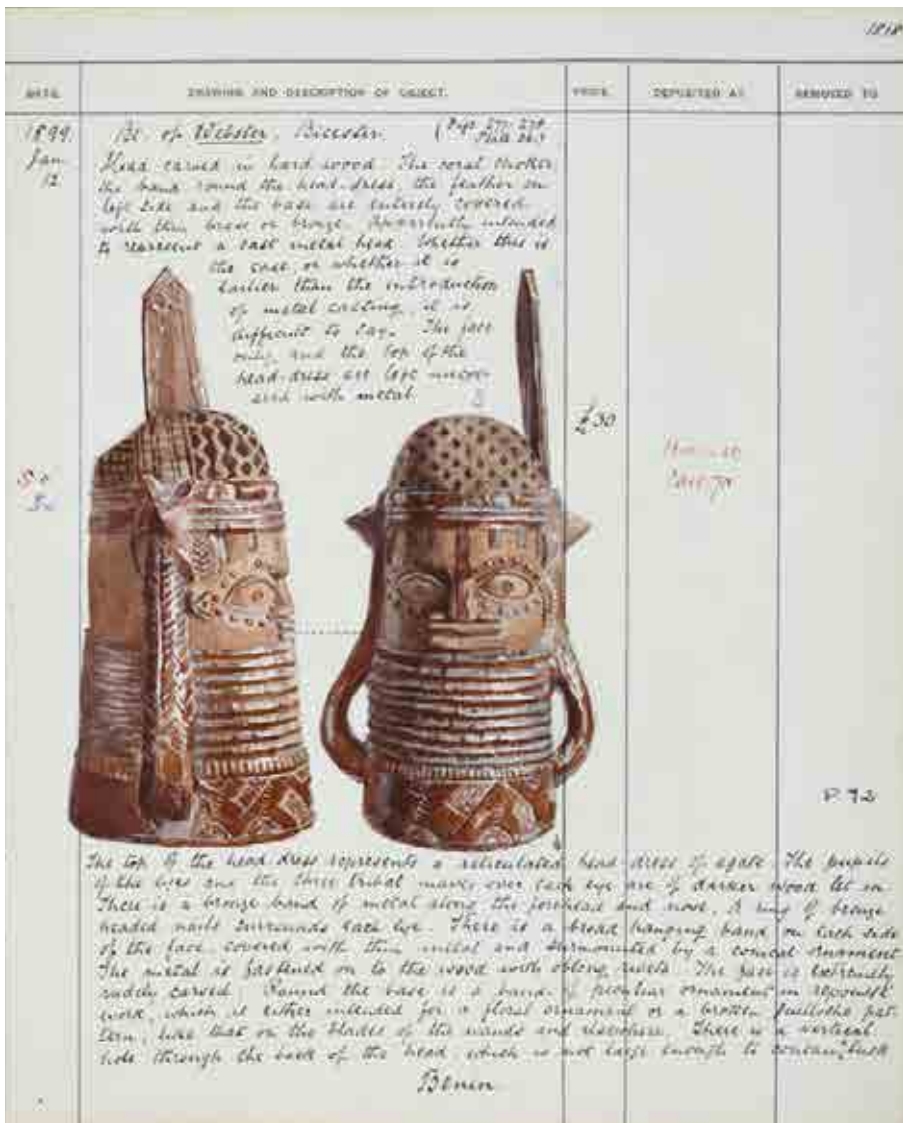 1818
DATE. DRAWING AND DESCRIPTION OF OBJECT. PRICE. DEPOSITED AT. REMOVED TO
1899. Bt. of Webster, Bicester. (Figs. 277. 278
Jan. Plate
12
Head carved in hard wood. The coral choker
the band round the head-dress, the feather on
left side and the base are entirely covered
with thin brass or bronze. intended
to represent a cast metal head. Whether this is
the case, or whether it is
earlier than the introduction
of metal casting, it is
difficult to say. The face
only, and the top of the
head-dress are left uncov-
ered with metal
£30
P. 92
The top of the head dress represents a reticulated head-dress of agate. The pupils
of the eyes and the three tribal marks over each eye are of darker wood let in
There is a bronze band of metal along the forehead and nose. A ring of bronze
headed nails surrounds each eye. There is a broad hanging band on each side
of the face, covered with thin metal and surmounted by a conical ornament
The metal is fastened on to the wood with oblong rivets. The face is extremely
rudely carved. Round the base is a band of peculiar ornament in repoussé
work, which is either intended for a floral ornament or a broken guilloche pat-
tern, like that on the blades of the wands and elsewhere. There is a vertical
hole through the back of the head, which is not large enough to contain tusk
Benin